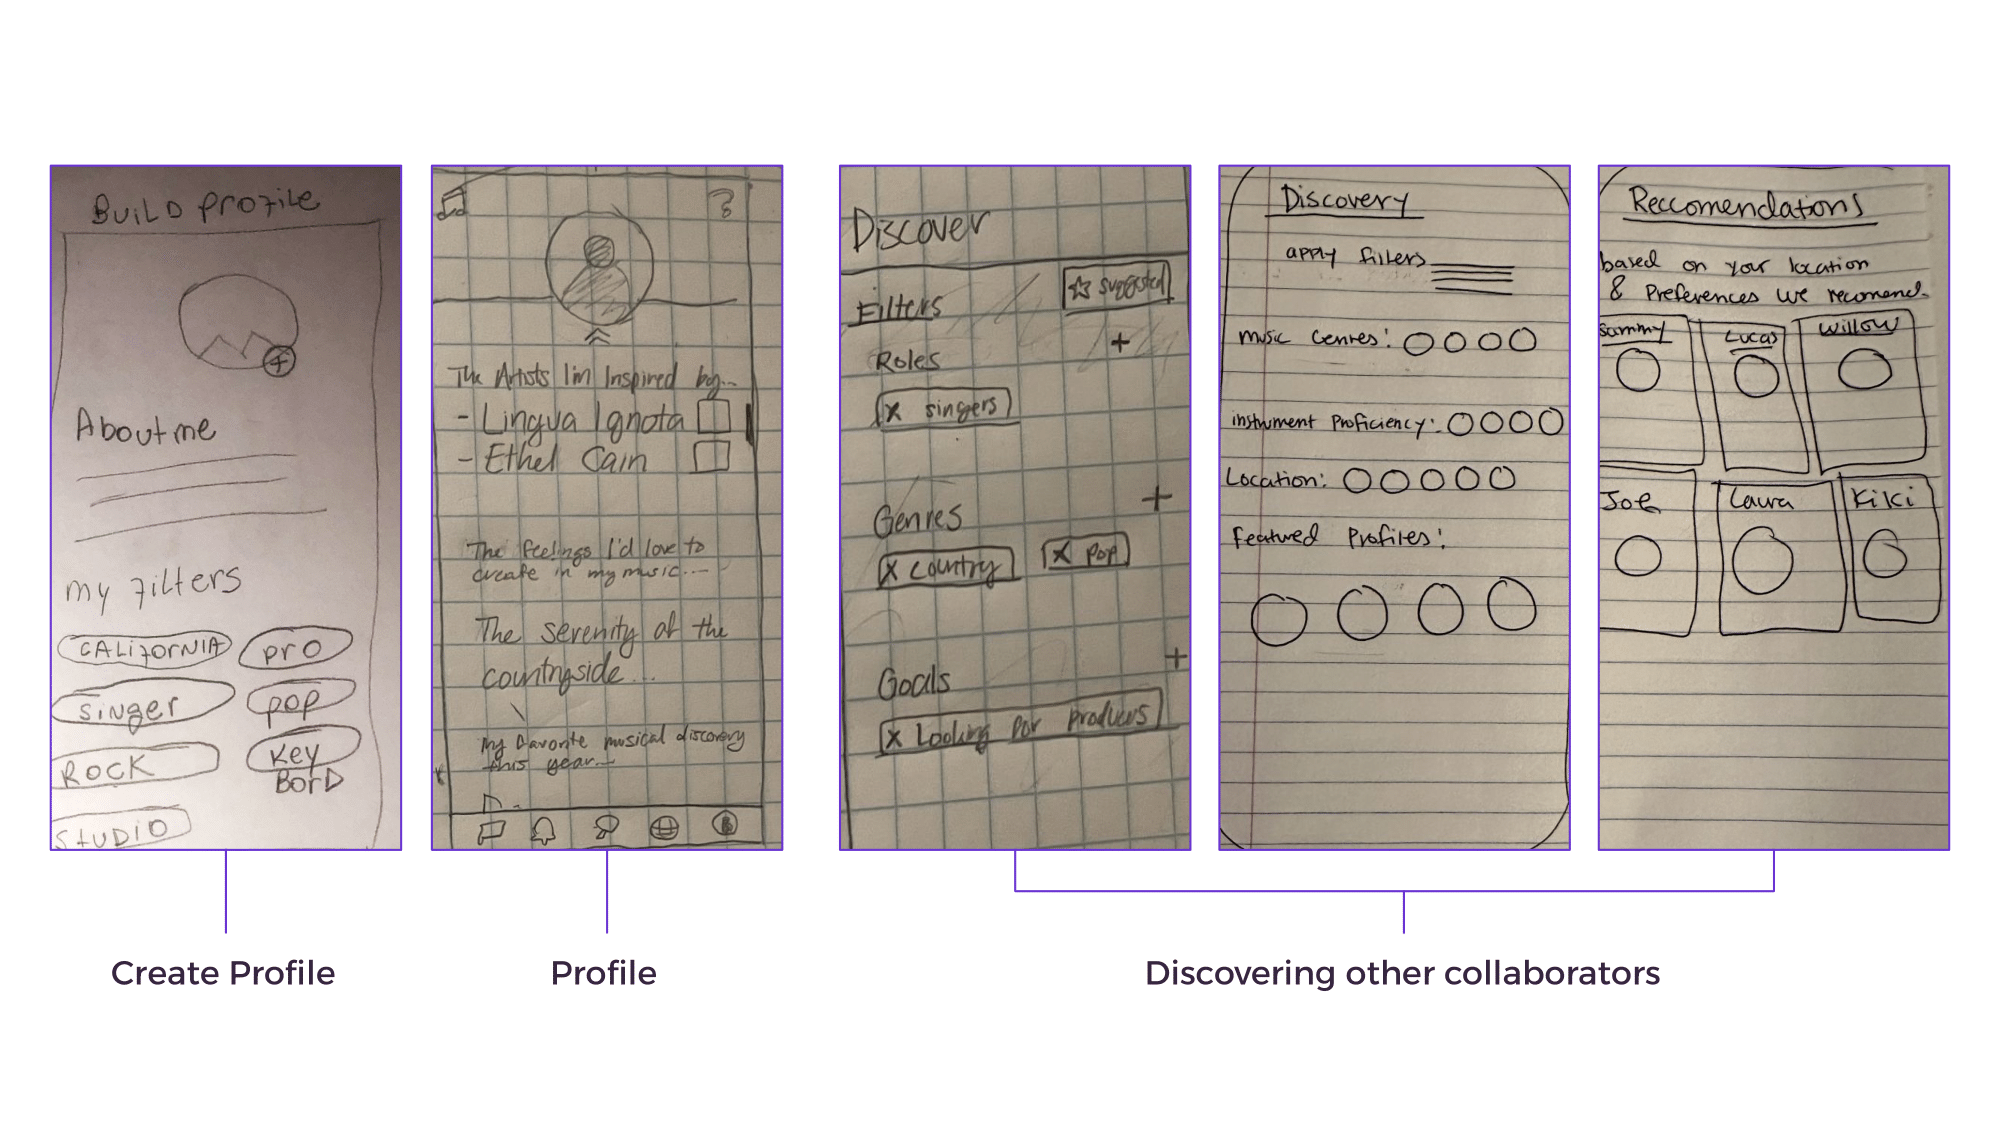 BUILD PROFILE
About me
my filters
CALifORNIA
pro
SiNger
pop
ROCK
Key
BorD
StUDIO
?
The Artists I'm Inspired by...
- Lingua Ignota
- Ethel Cain
The feelings I'd love to
create in my music...
The serenity of the
countryside...
My favorite musical discovery
this year...
Discover
Filters
☆ suggested
+
Roles
x singers
+
Genres
x country
x pop
+
Goals
x Looking for producers
Discovery
apply filters
music Genres:
instrument Proficiency:
Location:
featured Profiles:
Reccomendations
based on your location
& Preferences we recomend.
Sammy
Lucas
Willow
Joe
Laura
Kiki
Create Profile
Profile
Discovering other collaborators